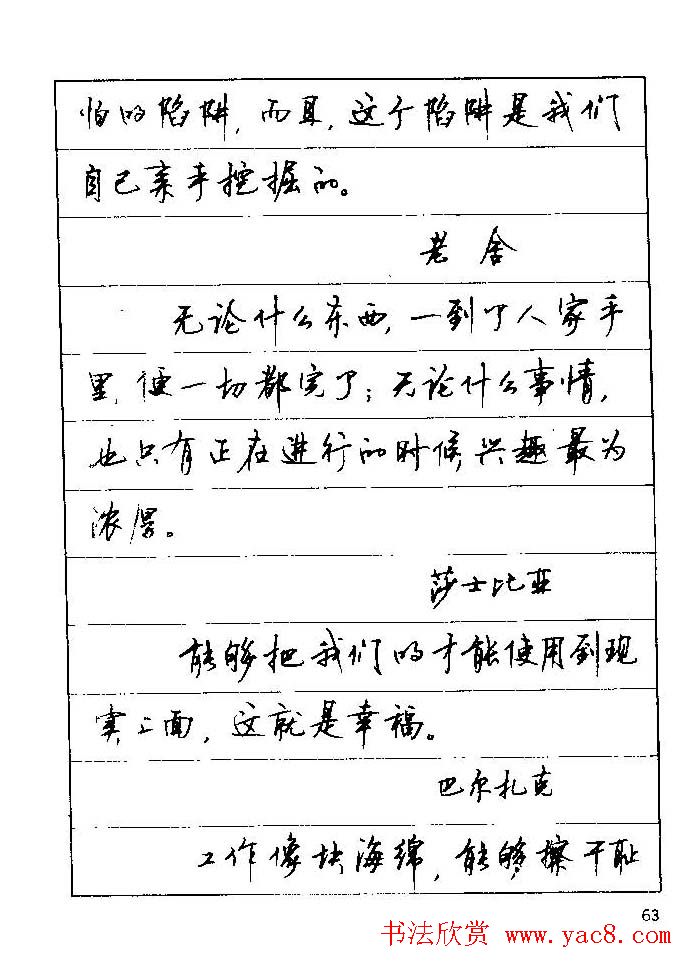 怕的陷阱，而且，这个陷阱是我们
自己亲手挖掘的。
老舍
无论什么东西，一到了人家手
里，便一切都完了；无论什么事情，
也只有正在进行的时候，兴趣最为
浓厚。
莎士比亚
能够把我们的才能使用到现
实上面，这就是幸福。
巴尔扎克
工作像块海绵，能够擦干耻
63
书法欣赏 www.yac8.com